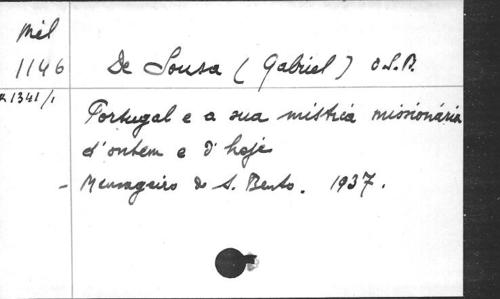 Mél
1146
De Sousa (Gabriel) O.S.B.
R 1341/1
Portugal e a sua mistica missionária
d'ontem e d'hoje
- Mensageiro de S. Bento. 1937.